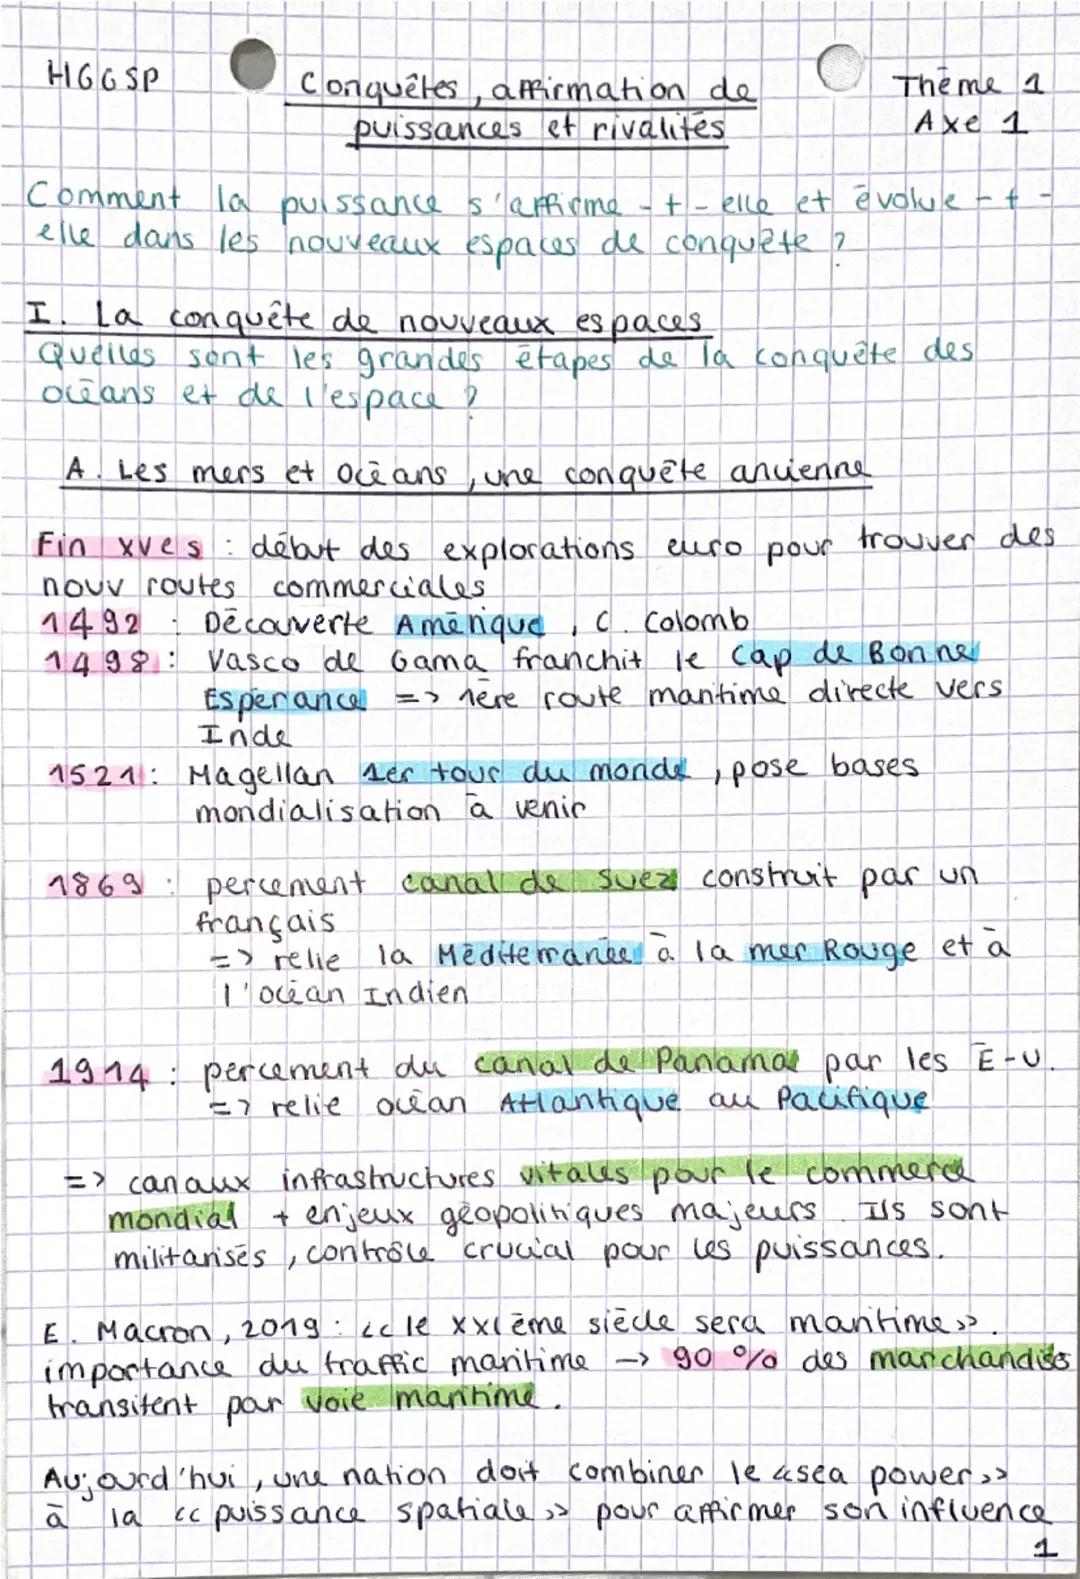 HGGSP
Conquêtes, affirmation de
puissances et rivalités
Thème 1
Axe 1
Comment la puissance s'affirme-t-elle et évolue-t-
elle dans les nouveaux espaces de conquête ?
I. La conquête de nouveaux espaces
Quelles sont les grandes étapes de la conquête des
océans et de l'espace ?
A. Les mers et océans, une conquête ancienne
Fin XVes : début des explorations euro pour trouver des
nouv routes commerciales
1492 : Découverte Amérique, C. Colomb
1498 : Vasco de Gama franchit le cap de Bonne
Espérance => 1ère route maritime directe vers
Inde
1521 : Magellan 1er tour du monde, pose bases
mondialisation à venir
1869 : percement canal de Suez construit par un
français
=> relie la Méditerranée à la mer Rouge et à
l'océan Indien
1914 : percement du canal de Panama par les E-U.
=> relie océan Atlantique au Pacifique
=> canaux infrastructures vitales pour le commerce
mondial + enjeux géopolitiques majeurs. Ils sont
militarisés, contrôle crucial pour les puissances.
E. Macron, 2019 : << le XXIème siècle sera maritime >>.
importance du traffic maritime -> 90 % des marchandises
transitent par voie maritime.
Aujourd'hui, une nation doit combiner le << sea power >>
à la << puissance spatiale >> pour affirmer son influence
1